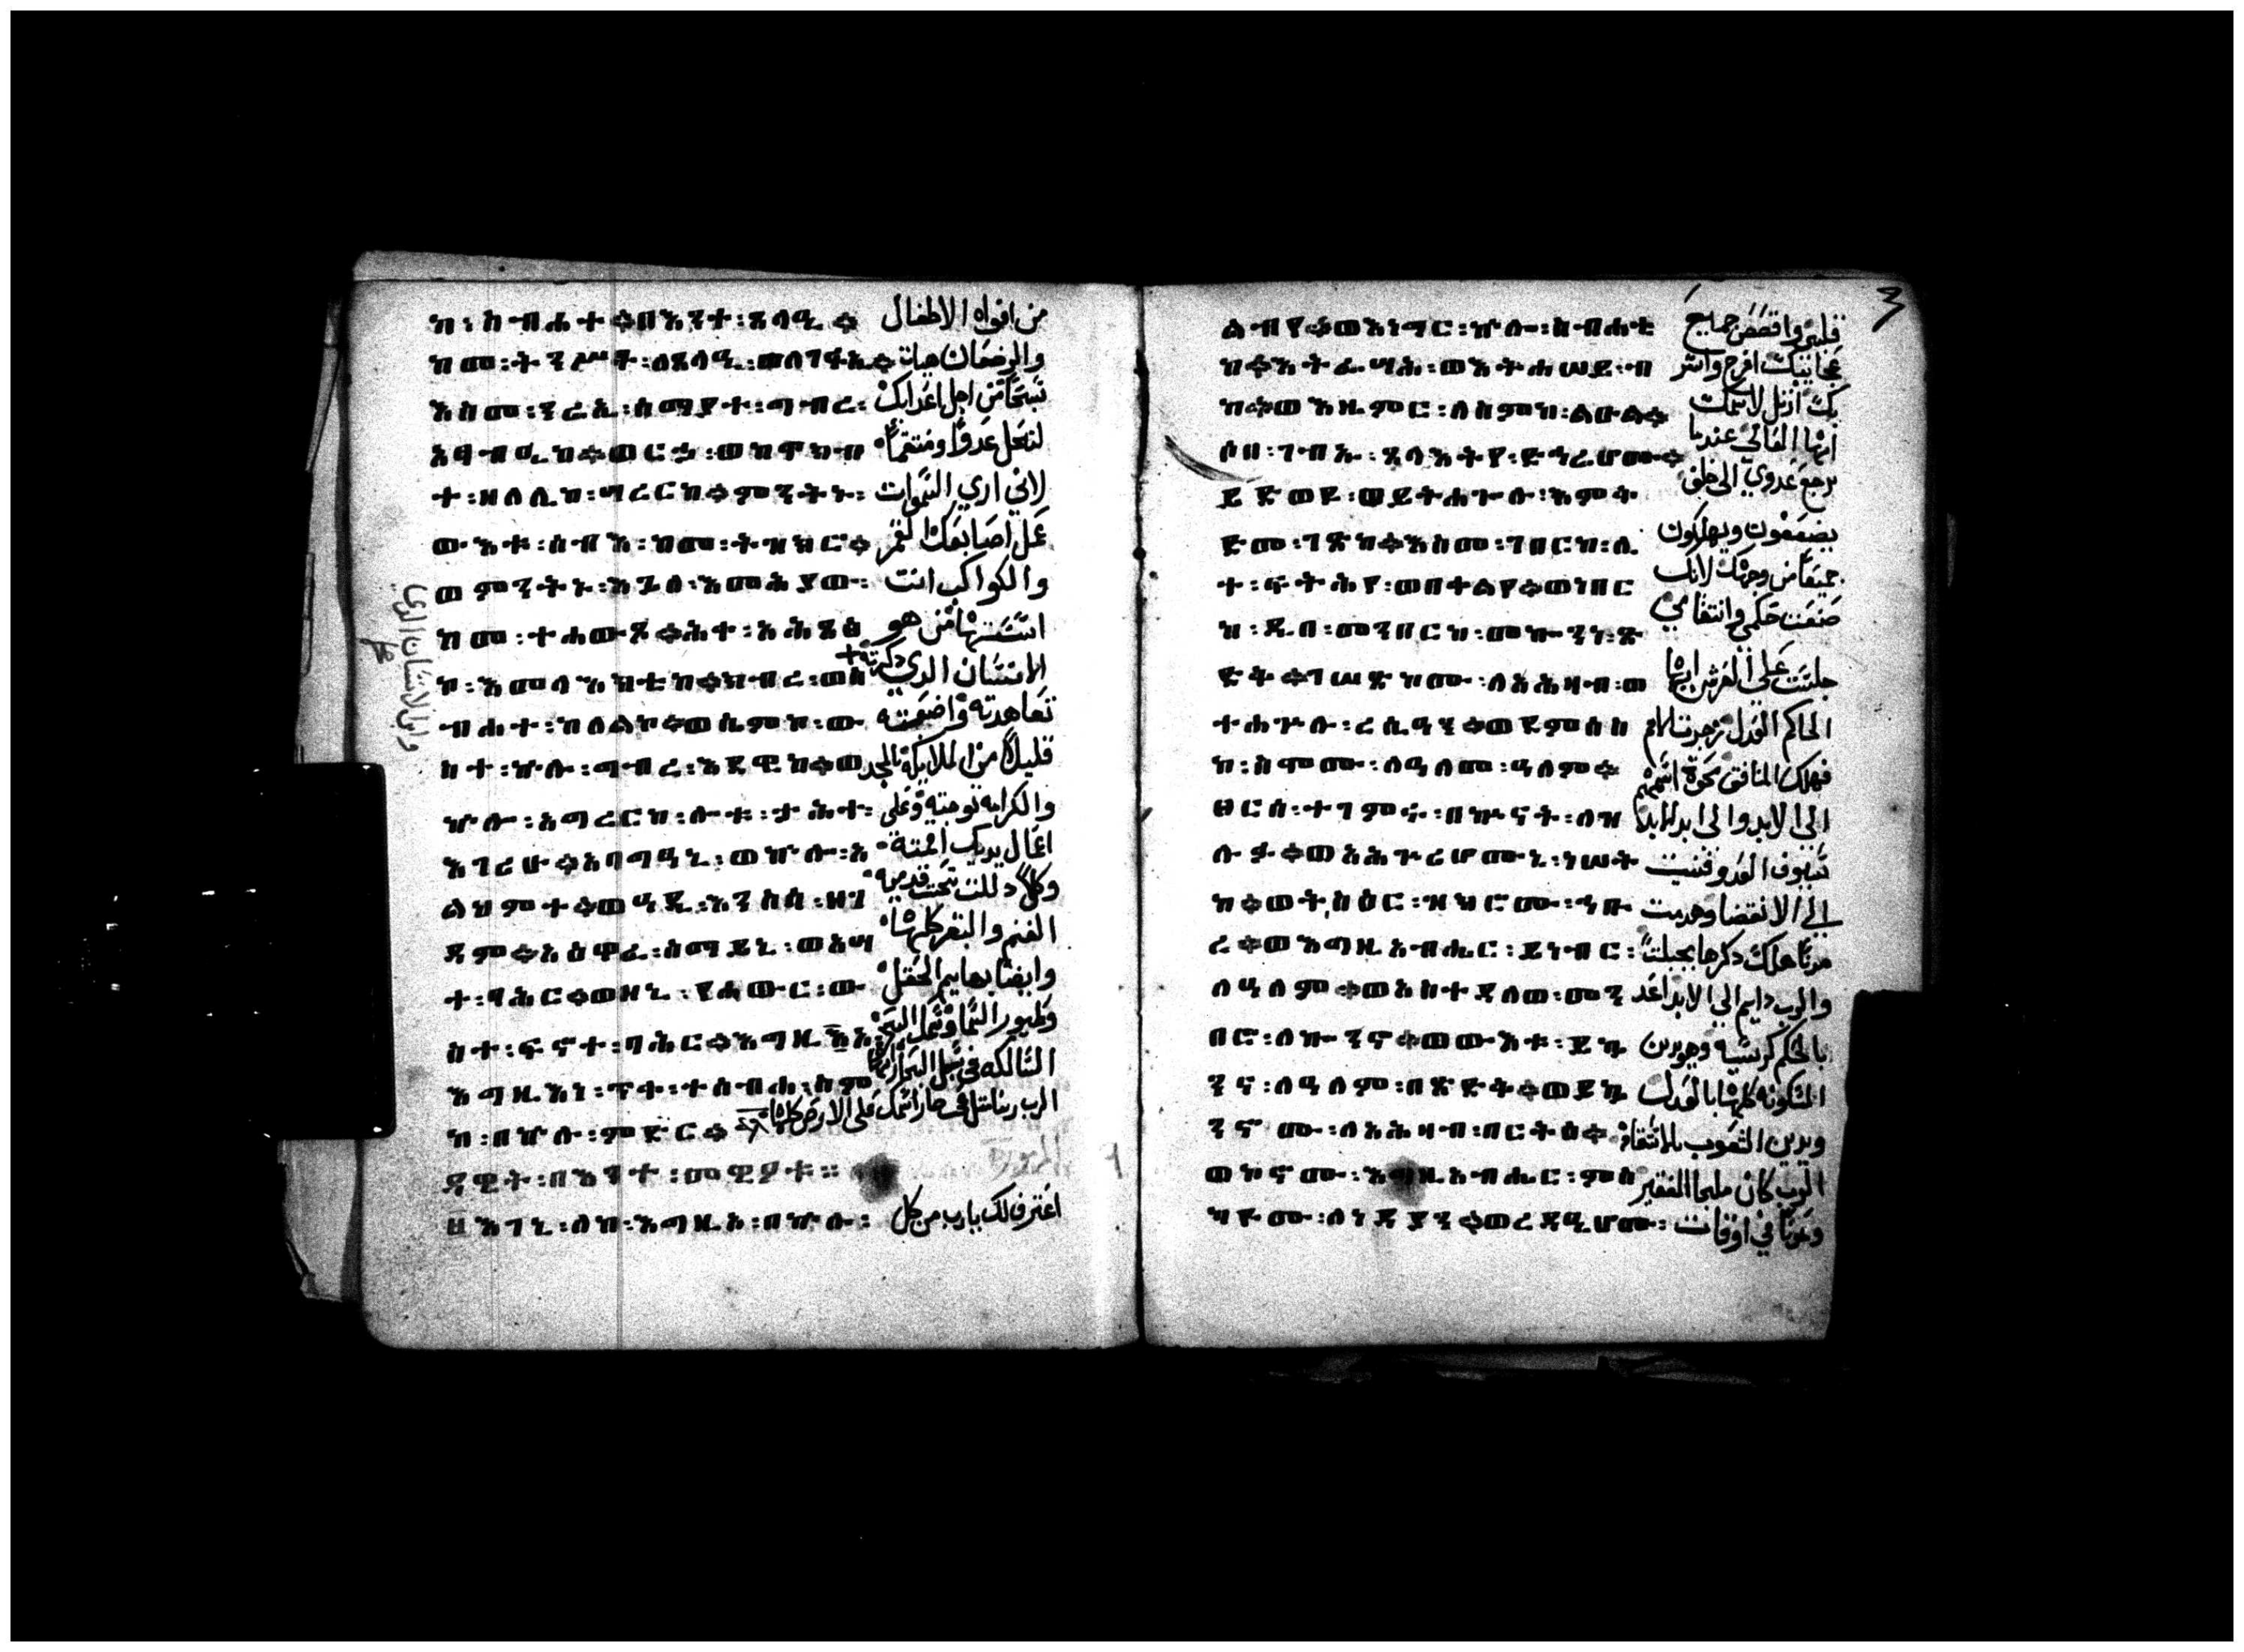 ከ፡ስብሐተ።በእንተ፡ጸላዒ።
ከመ፡ትንሥት፡ለጸላዒ፡ወለገፋኢ።
እስመ፡ንሬኢ፡ሰማያተ፡ግብረ፡
አፃብዒከ።ወርኅ፡ወከዋክብ
ተ፡ዘለሊከ፡ሣረርከ።ምንትኑ፡
ውእቱ፡ሰብእ፡ከመ፡ትዝክሮ።
ወምንትኑ፡እጓለ፡እመሕያው፡
ከመ፡ተሐውጾ።ሕቀ፡አሕጸፅ
ኮ፡እመላእክቲከ።ክብረ፡ወስ
ብሐተ፡ከለልኮ።ወሢምኮ፡ው
ስተ፡ኵሉ፡ግብረ፡እደዊከ።ወ
ኵሎ፡አግረርከ፡ሎቱ፡ታሕተ፡
እገሪሁ።አባግዓኒ፡ወኵሎ፡አ
ልህምተ።ወዓዲ፡እንስሳ፡ዘገ
ዳም።አዕዋፈ፡ሰማይኒ፡ወዓሣ
ተ፡ባሕር።ወዘኒ፡የሐውር፡ው
ስተ፡ፍኖተ፡ባሕር።እግዚኦ፡
እግዚእነ፡ጥቀ፡ተሰብሐ፡ስም
ከ፡በኵሉ፡ምድር።
ዳዊት፡በእንተ፡መዊዖቱ።
እገኒ፡ለከ፡እግዚኦ፡በኵሉ፡
من افواه الاطفال
والرضعان هيات
سبحا من اجل اعدايك
لتبطل عدوا ومنتقما
لاني اري السموات
عمل اصابعك القمر
والكواكب انت
اسستها من هو
الانسان الدي دكرته
تعاهدته واضعته
قليلا من الملايكه بالمجد
والكرامه توجته وعلى
اعمال يديك اقمته
وكلا دللت تحت قدميه
الغنم والبقر كلها
وايضا بهايم الحقل
وطيور السما وسمك البحر
السالكه في سبل البحار ايها
الرب ربنا
اعترف لك يارب من كل
وابن الانسان الدي
ልብየ።ወእነግር፡ኵሎ፡ስብሐቲ
ከ።እትፌሣሕ፡ወእትሐሠይ፡ብ
ከ።ወእዜምር፡ለስምከ፡ልዑል።
ሶበ፡ገብአ፡ጸላእትየ፡ድኅሬሆሙ።
ይድወዩ፡ወይትሐጐሉ፡እምቅ
ድመ፡ገጽከ።እስመ፡ገበርከ፡ሊ
ተ፡ፍትሕየ፡ወበቀልየ።ወነበር
ከ፡ዲበ፡መንበርከ፡መኰንነ፡ጽ
ድቅ።ገሠጽኮሙ፡ለአሕዛብ፡ወ
ተሐጕሉ፡ረሲዓን።ወደምሰስ
ከ፡ስሞሙ፡ለዓለመ፡ዓለም።
ፀርሰ፡ተገምሩ፡በኵናት፡ለዝ
ሉፉ።ወአሕጕሪሆሙኒ፡ነሠት
ከ።ወትስዕር፡ዝክሮሙ፡ኅቡ
ረ።ወእግዚአብሔር፡ይነብር፡
ለዓለም።ወአስተዳለወ፡መን
በሮ፡ለኰንኖ።ወውእቱ፡ይኴ
ንና፡ለዓለም፡በጽድቅ።ወይኴ
ንኖሙ፡ለአሕዛብ፡በርትዕ።
ወኮኖሙ፡እግዚአብሔር፡ምስ
ካዮሙ፡ለነዳያን።ወረዳኢሆሙ፡
قلبي واقصص جميع
عجايبك افرح واسر
بك ارتل لاسمك
ايها العالي عندما
يرجع عدوي الى خلف
يضعفون ويهلكون
جميعا من وجهك لانك
صنعت حكمي وانتقامي
جلست علي العرش ايها
الحاكم العدل زجرت الامم
فهلك المنافق محوة اسمهم
الي الابد والى ابد الابد
سيوف العدو فنيت
الي الانقضا وهدمت
مدنا هلك دكرها بجلبت
والرب دايم الي الابد اعد
بالحكم كرسيه وهو يدين
المسكونه كلها بالعدل
ويدين الشعوب بالاستقامه
الرب كان ملجا للفقير
وعونا في اوقات